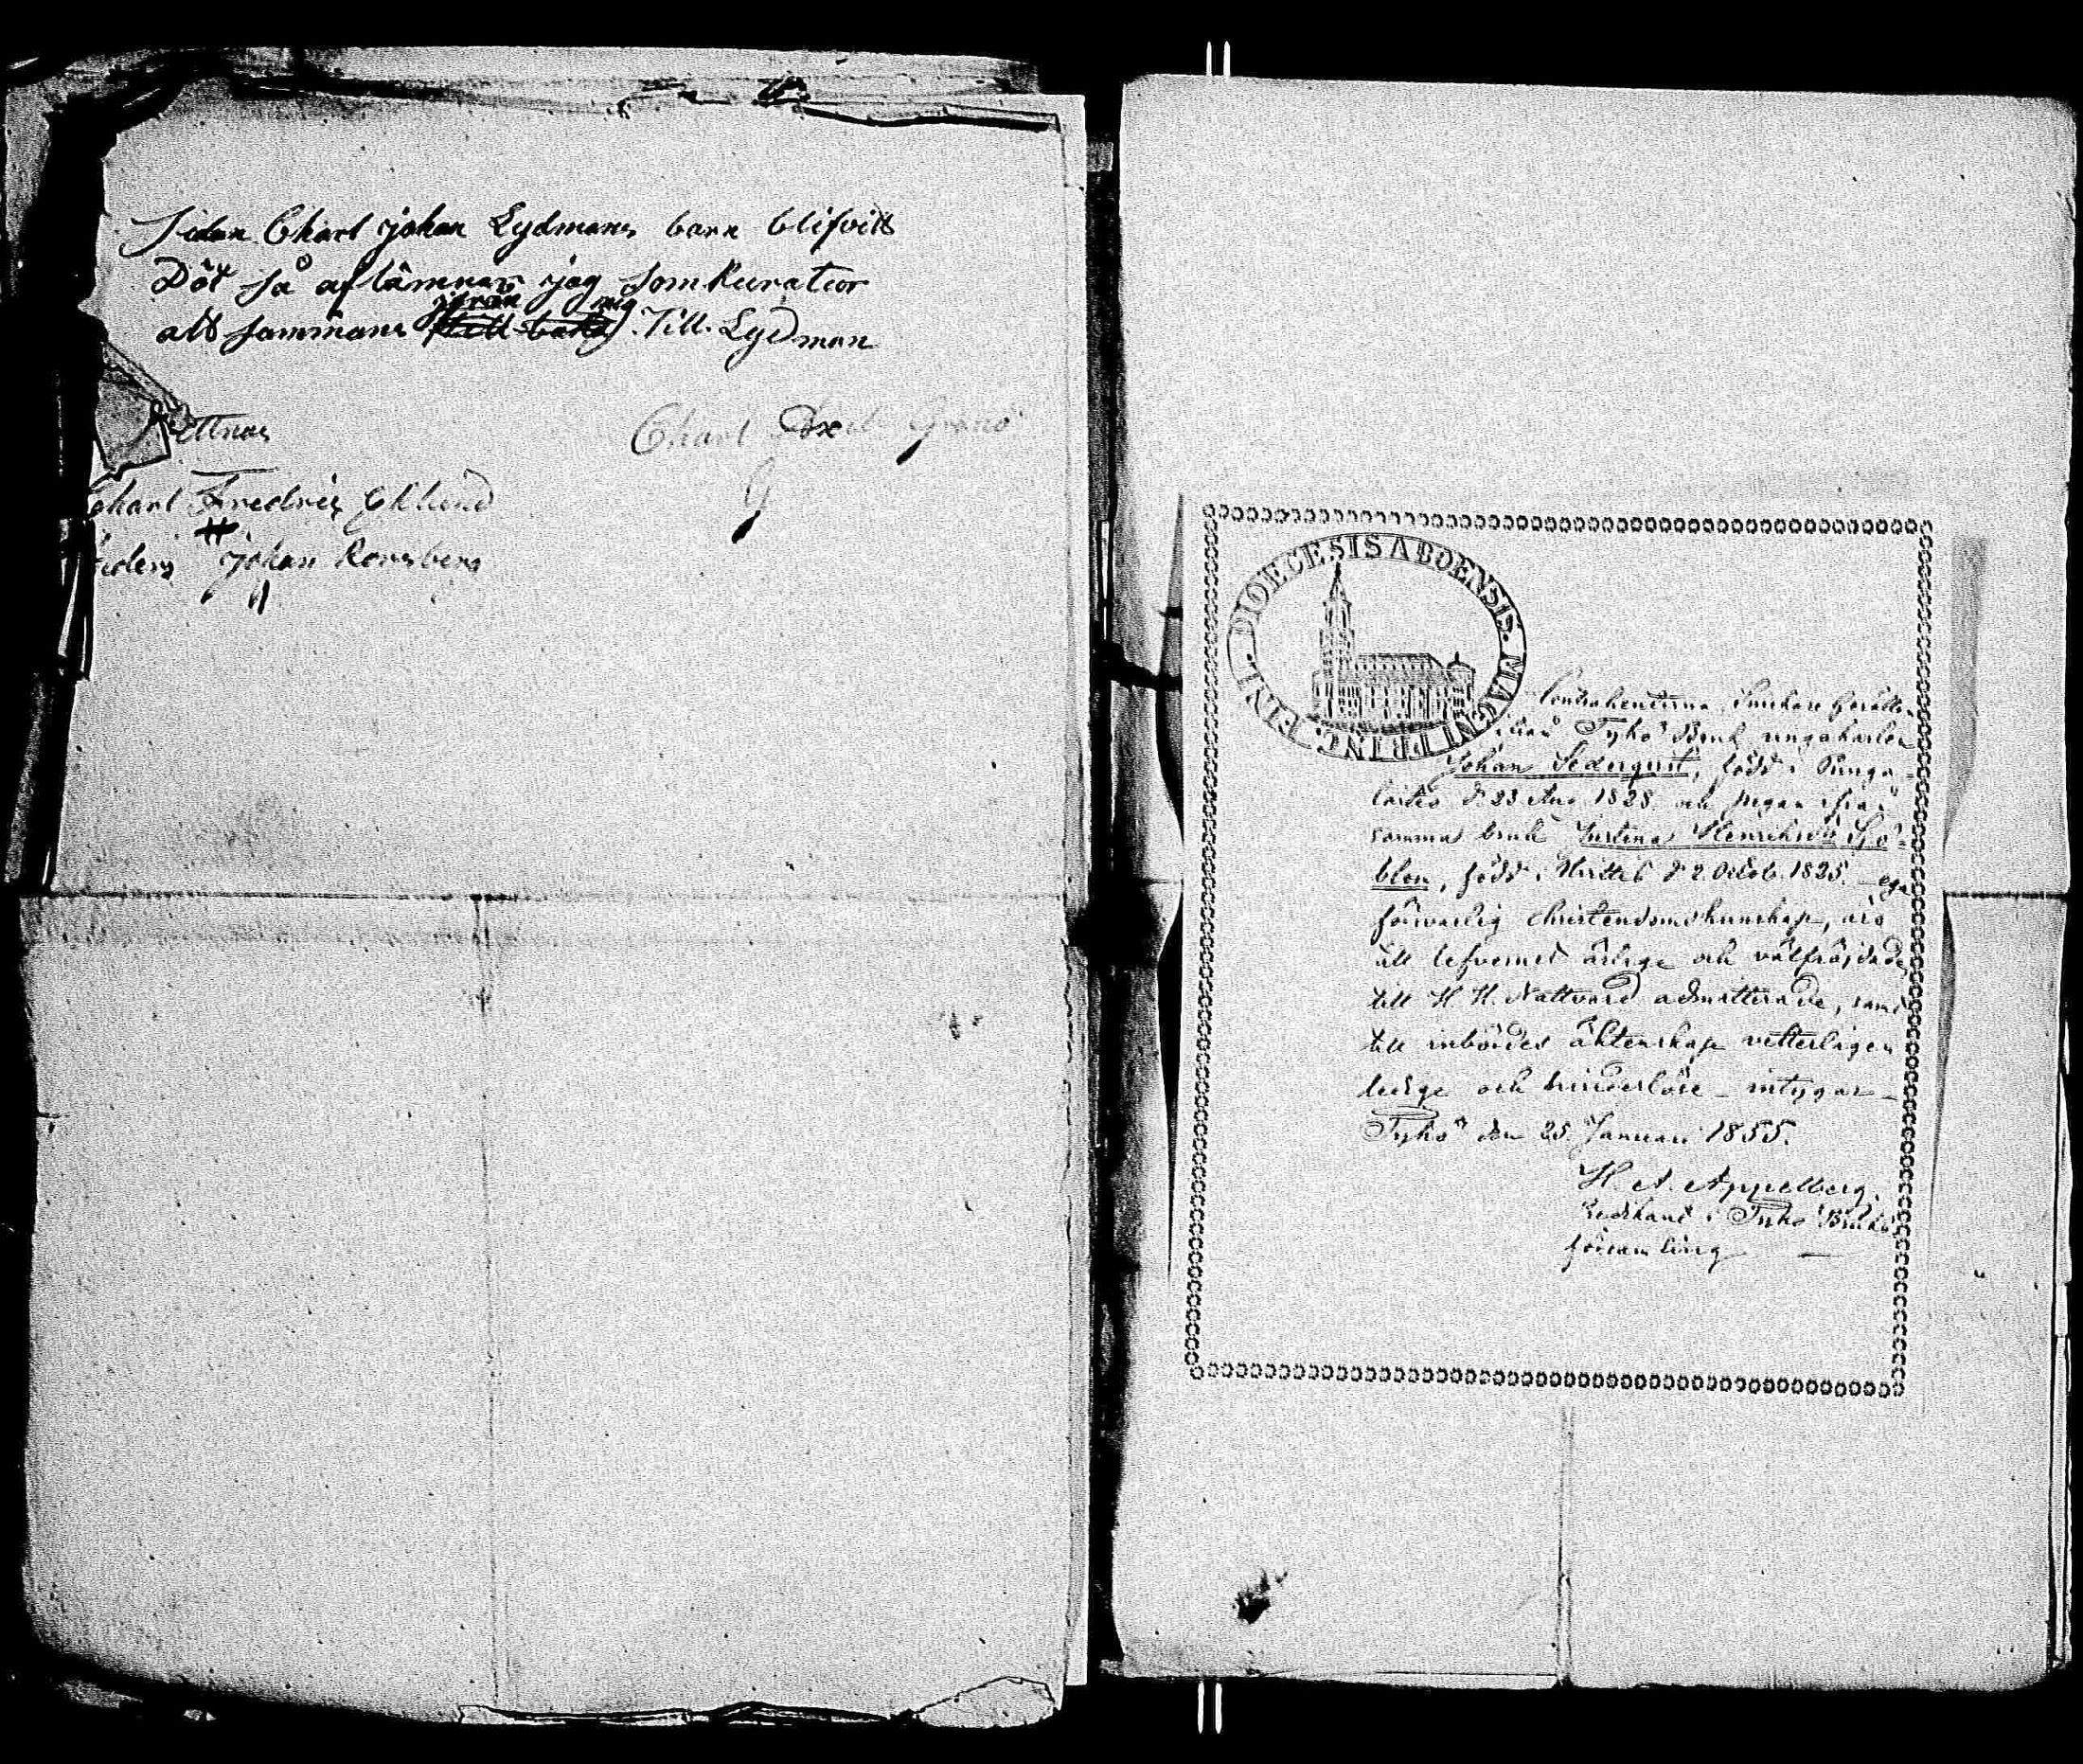 Sidan Charl johan Lydmans barn blifvitt
Död så aflämnar jag som Kurator
alt sammans ifrån mig Till Lydman
Charl Axel Grönö
Charl Fredric Eklund
johan Korsberg
DIOECESIS ABOENSIS. MAGNI PRINC. FINL.
Contrahenterna, Smickare Gesälle-
ifrån Tykö Bruk ungakarlen
Johan Sederqvist, född i Punga-
laitio d 23 Aug. 1828. och pigan ifrån
samma bruk Justina Henriksdr Sjö-
blom, född i Kisko d 2. Octob. 1825. – ega
försvarlig christendomskunskap, äro
till lefvernet ärlige och välfräjdade
till H. H. Nattvard admitterade, samt
till inbördes äktenskap vetterligen
ledige och hinderlöse – intygar –
Tykö den 25. Januari 1855.
H. A. Appelberg.
Predikant i Tykö Bruks
församling